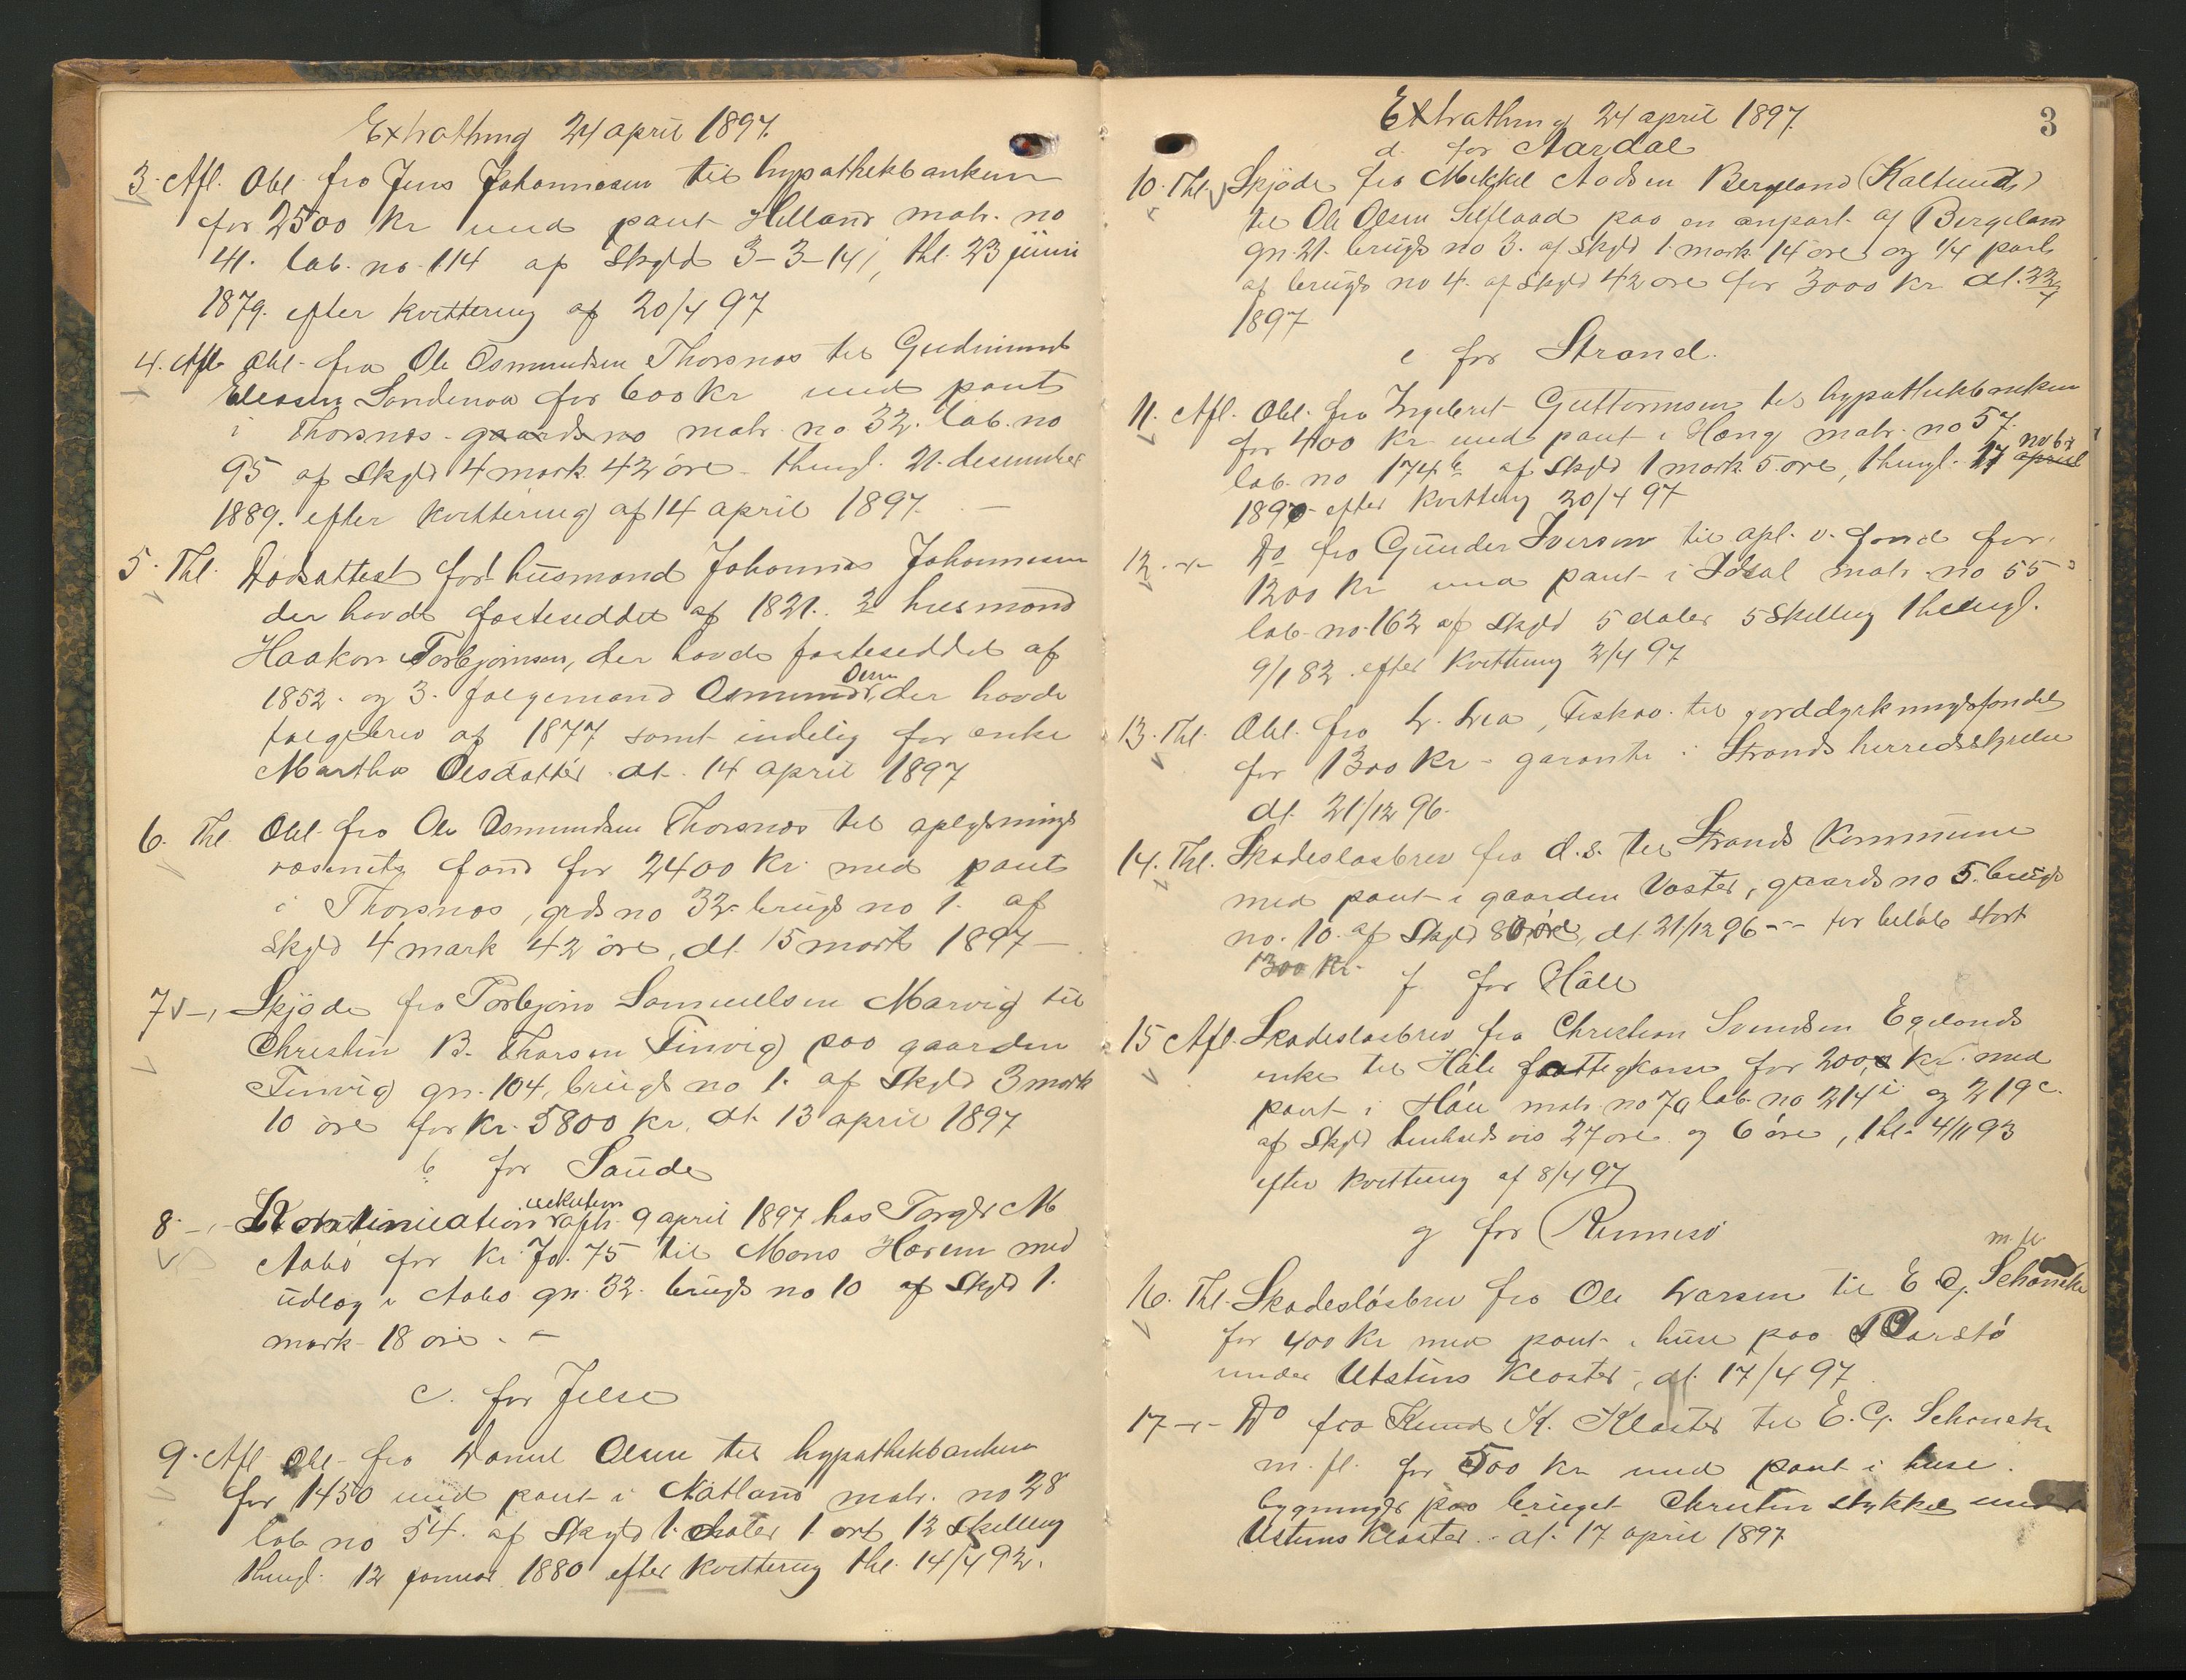 Extrathing 24 april 1897.
3. Afl. Obl. fra Jens Johannesen til hypothekbanken
for 2500 kr med pant Helland matr. no
41. løb. no 114 af Skyld 3-3-14, thl. 23 juni
1879. efter kvittering af 20/4 97
4. Afl. Obl. fra Ole Osmundsen Thorsnæs til Gudmund
Sandenaa for 600 kr med pant
i Thorsnæs matr. no 32. løb. no
95 af Skyld 4 mark 42 øre thingl. 21. desember
1889. efter kvittering af 14 april 1897. —
5. Thl. Dødsattest for 1 husmand Johannes Johannesen
der havde fæsteseddel af 1821. 2 husmand
Haakon Torbjørnsen, der havde fæsteseddel af
1852. og 3. folgemand Osmund Olsen, der havde
folgebrev af 1877 samt for enke
Martha Olsdatter dt. 14 april 1897
6. Thl. Obl. fra Ole Osmundsen Thorsnæs til oplysnings
væsenets fond for 2400 kr. med pant
i Thorsnæs, grds no 32. brugs no 1. af
Skyld 4 mark 42 øre, dt. 15 marts 1897 —
7 — Skjøde fra Torbjørn Samuelsen Marvig til
Christen B. Thorsen Finvig paa gaarden
Finvig gn. 104, brugs no 1. af Skyld 3 mark
10 øre for kr. 5800 kr. dt. 13 april 1897
b for Saude
8. — 9 april 1897 hos Torger M
Aabø for kr. 75 til Mons Haven med
udlæg i Aabø gn. 32. brugs no 10 af Skyld 1.
mark 18 øre. —
c. for Jelse
9. Afl. Obl. fra Daniel Olsen til hypothekbanken
for 1450 med pant i Natland matr. no 28
løb no 54. af Skyld 1. daler 1. ort 12 skilling
thingl. 12 januar 1880 efter kvittering thl. 14/4 92.
3
Extrathing 24 april 1897.
d. for Aardal
10. Thl. Skjøde fra Mikkel Aadsen Bergeland (Kaltund)
til Ole Olsen paa en anpart af Bergeland
gn. 21. brugs no 3. af Skyld 1. mark 14 øre og 1/4 part
af brugs no 4. af Skyld 42 øre for 3000 kr dt. 22/4
1897
e for Strand.
11. Afl. Obl. fra Ingebret Guttormsen til hypothekbanken
for 400 kr med pant i Hæng matr. no 57.
løb. no 174 b af Skyld 1 mark 5 øre, thingl. 17 april novbr
1890 efter kvittering 20/4 97
12. — Do fra Gunder Iversen til opl. v. fond for
1200 kr med pant i Idsal matr. no 55
løb. no 162 af Skyld 5 daler 5 Skilling thingl.
9/1 82. efter kvittering 2/4 97
13. Thl. Obl. fra L. Lea, Fiskaa til jorddyrkningsfondet
for 1300 kr - garanti: Strands herredsstyrelse
dt. 21/12 96.
14. Thl. Skadesløsbrev fra d.s. til Strands Kommune
med pant i gaarden Voster, gaards no 5. brugs
no. 10. af Skyld 80 øre, dt. 21/12 96 -- for beløb stort
1300 kr.
f for Hâle
15 Afl. Skadesløsbrev fra Christian Svendsen Egelands
enke til Hâle fattigkasse for 200 kr. med
pant i matr. no 79 løb no 214 i og 219 c.
af Skyld henholdsvis 27 øre og 6 øre, thl. 4/11 93
efter kvittering af 8/4 97
g for Rennesø
16. Thl. Skadesløsbrev fra Ole Larsen til E. G. Schøneke m. fl.
for 400 kr med pant i huse paa
under Utstens Kloster, dt. 17/4 97.
17 — Do fra Knud K. Kloster til E. G. Schøneke
m. fl. for 500 kr med pant i huse.
bygninger paa bruget Christen stykket under
Utstens Kloster. dt. 17 april 1897